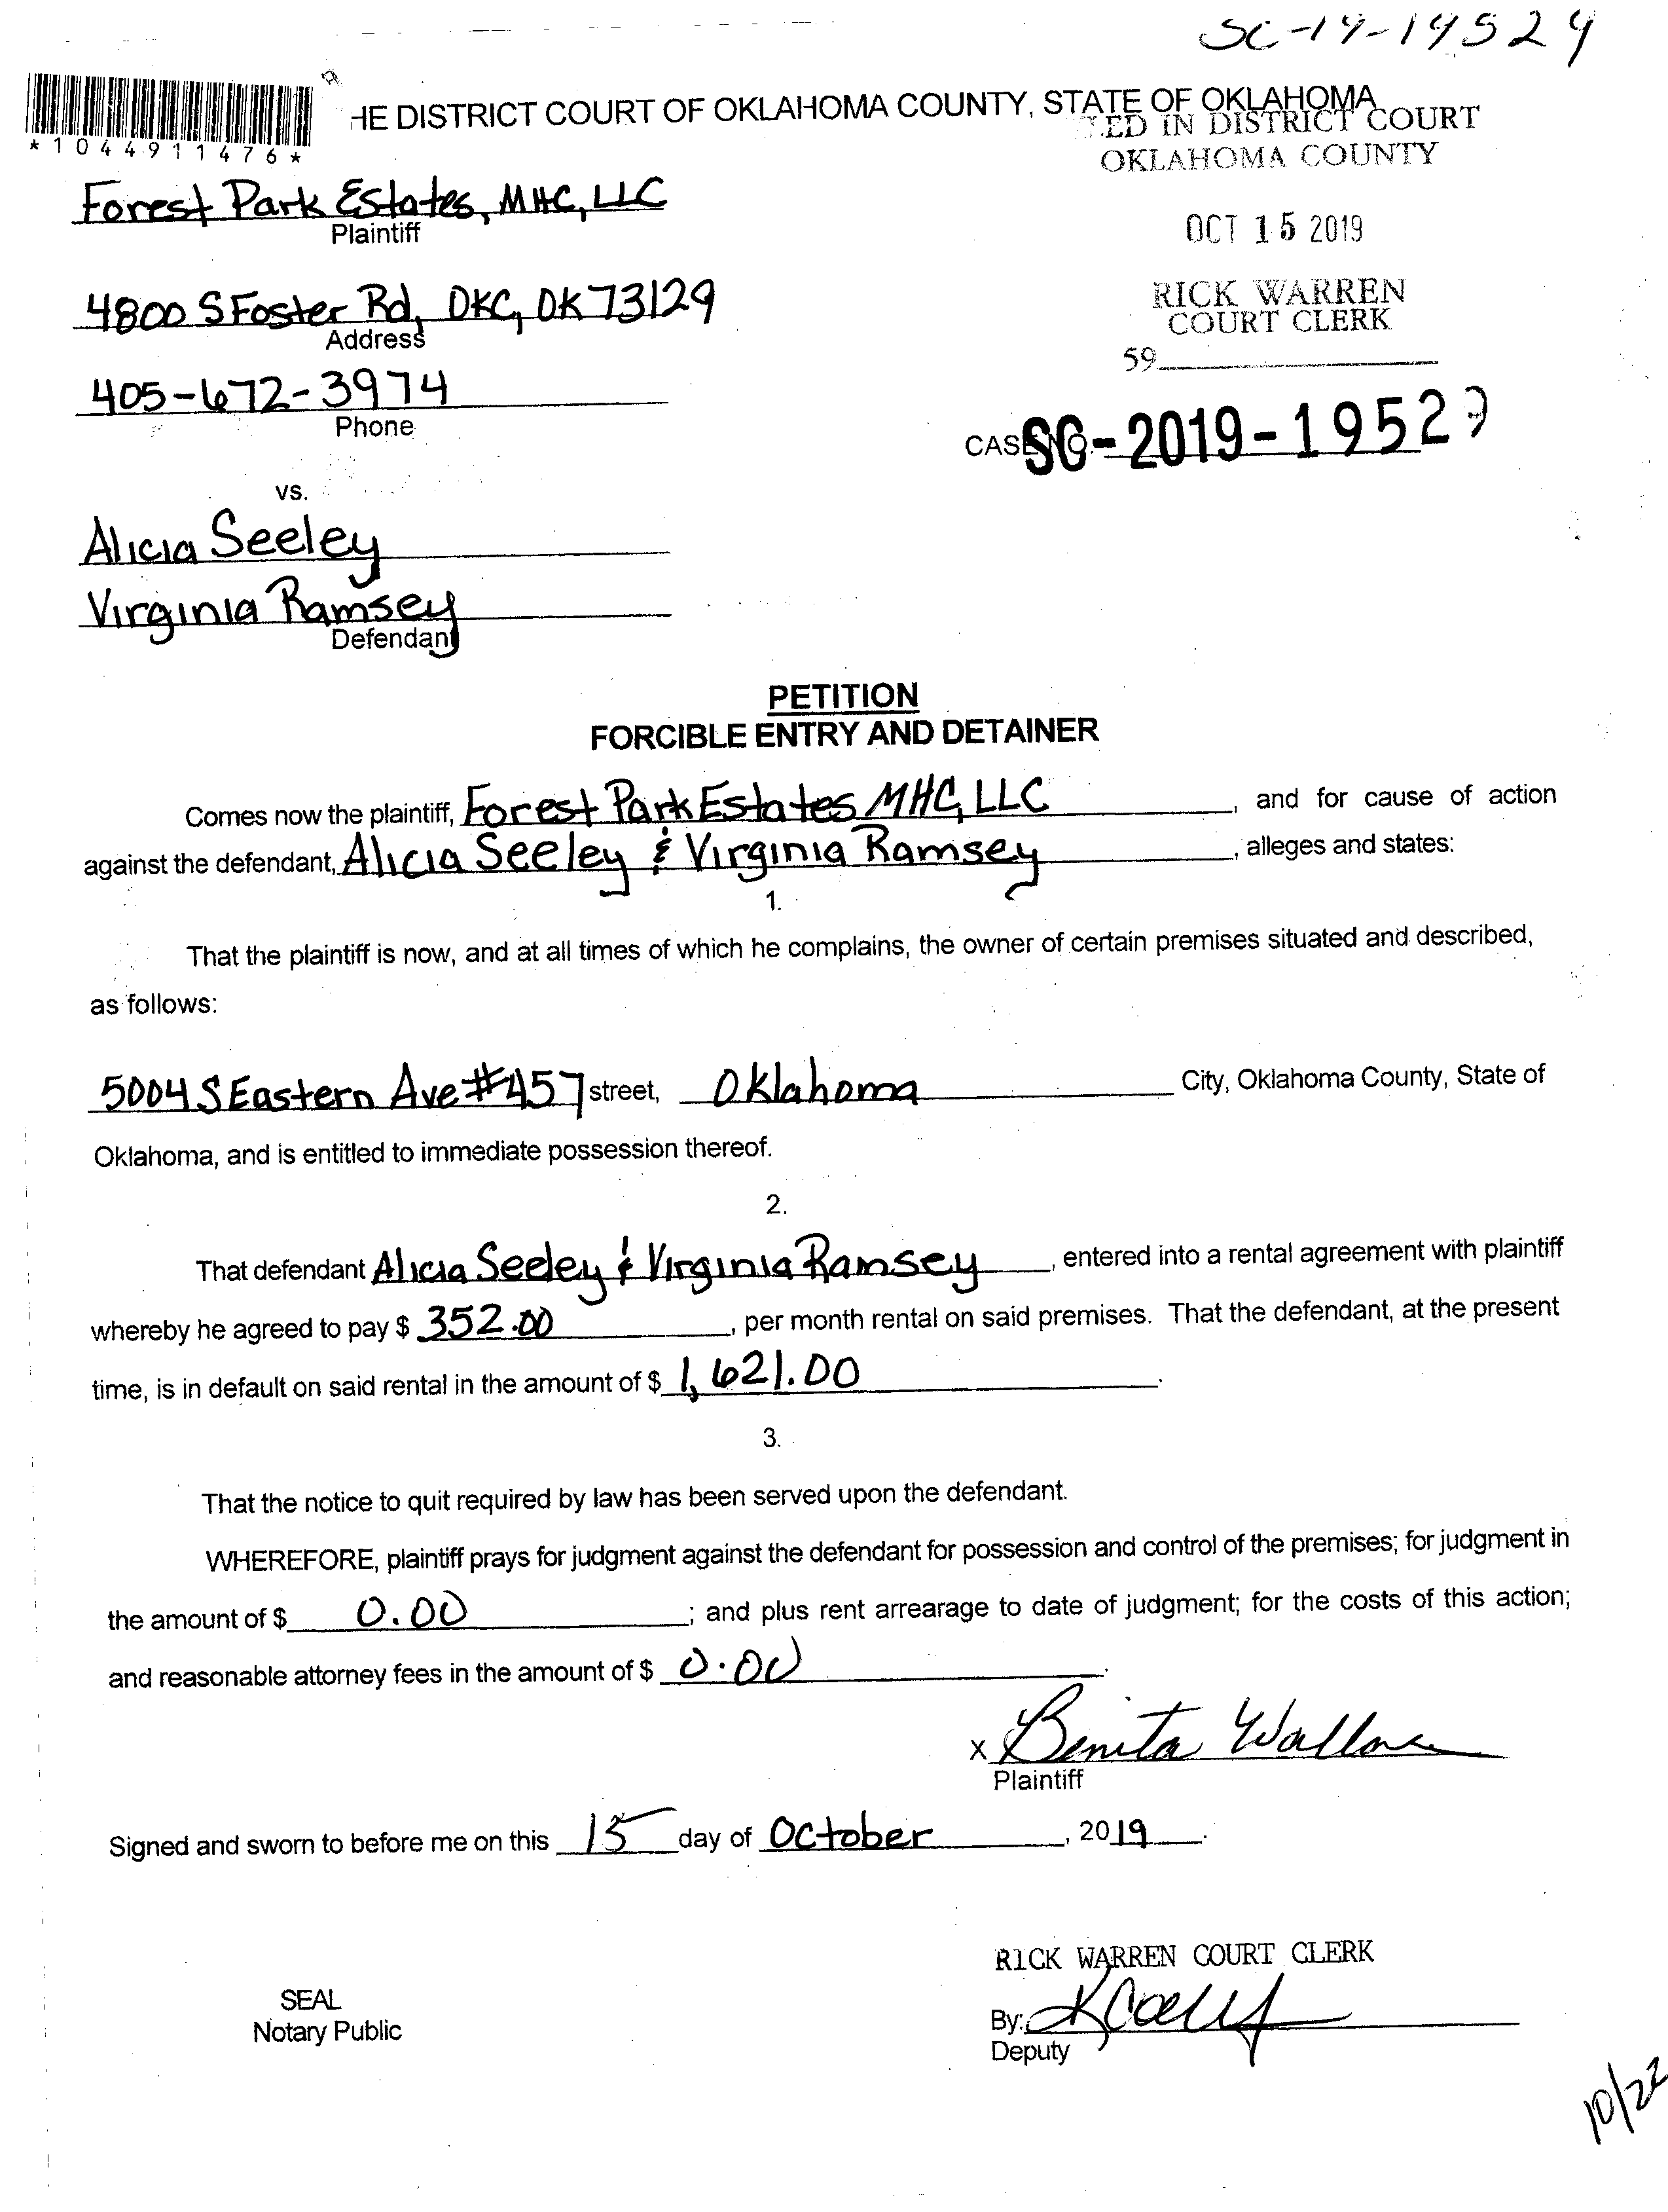 SC-19-19529
HE DISTRICT COURT OF OKLAHOMA COUNTY, STATE OF OKLAHOMA
ED IN DISTRICT COURT
OKLAHOMA COUNTY
*1044911476*
Forest Park Estates, MHC, LLC
Plaintiff
OCT 15 2019
4800 S Foster Rd, OKC, OK 73129
Address
RICK WARREN
COURT CLERK
59
405-672-3974
Phone
CASE NO. SC-2019-19529
vs.
Alicia Seeley
Virginia Ramsey
Defendant
PETITION
FORCIBLE ENTRY AND DETAINER
Comes now the plaintiff, Forest Park Estates MHC, LLC, and for cause of action
against the defendant, Alicia Seeley & Virginia Ramsey, alleges and states:
1.
That the plaintiff is now, and at all times of which he complains, the owner of certain premises situated and described,
as follows:
5004 S Eastern Ave #457 street, Oklahoma City, Oklahoma County, State of
Oklahoma, and is entitled to immediate possession thereof.
2.
That defendant Alicia Seeley & Virginia Ramsey, entered into a rental agreement with plaintiff
whereby he agreed to pay $ 352.00, per month rental on said premises. That the defendant, at the present
time, is in default on said rental in the amount of $ 1,621.00.
3.
That the notice to quit required by law has been served upon the defendant.
WHEREFORE, plaintiff prays for judgment against the defendant for possession and control of the premises; for judgment in
the amount of $ 0.00; and plus rent arrearage to date of judgment; for the costs of this action;
and reasonable attorney fees in the amount of $ 0.00.
x Benita Wallace
Plaintiff
Signed and sworn to before me on this 15 day of October, 2019.
RICK WARREN COURT CLERK
SEAL
Notary Public
By:
Deputy
10/22